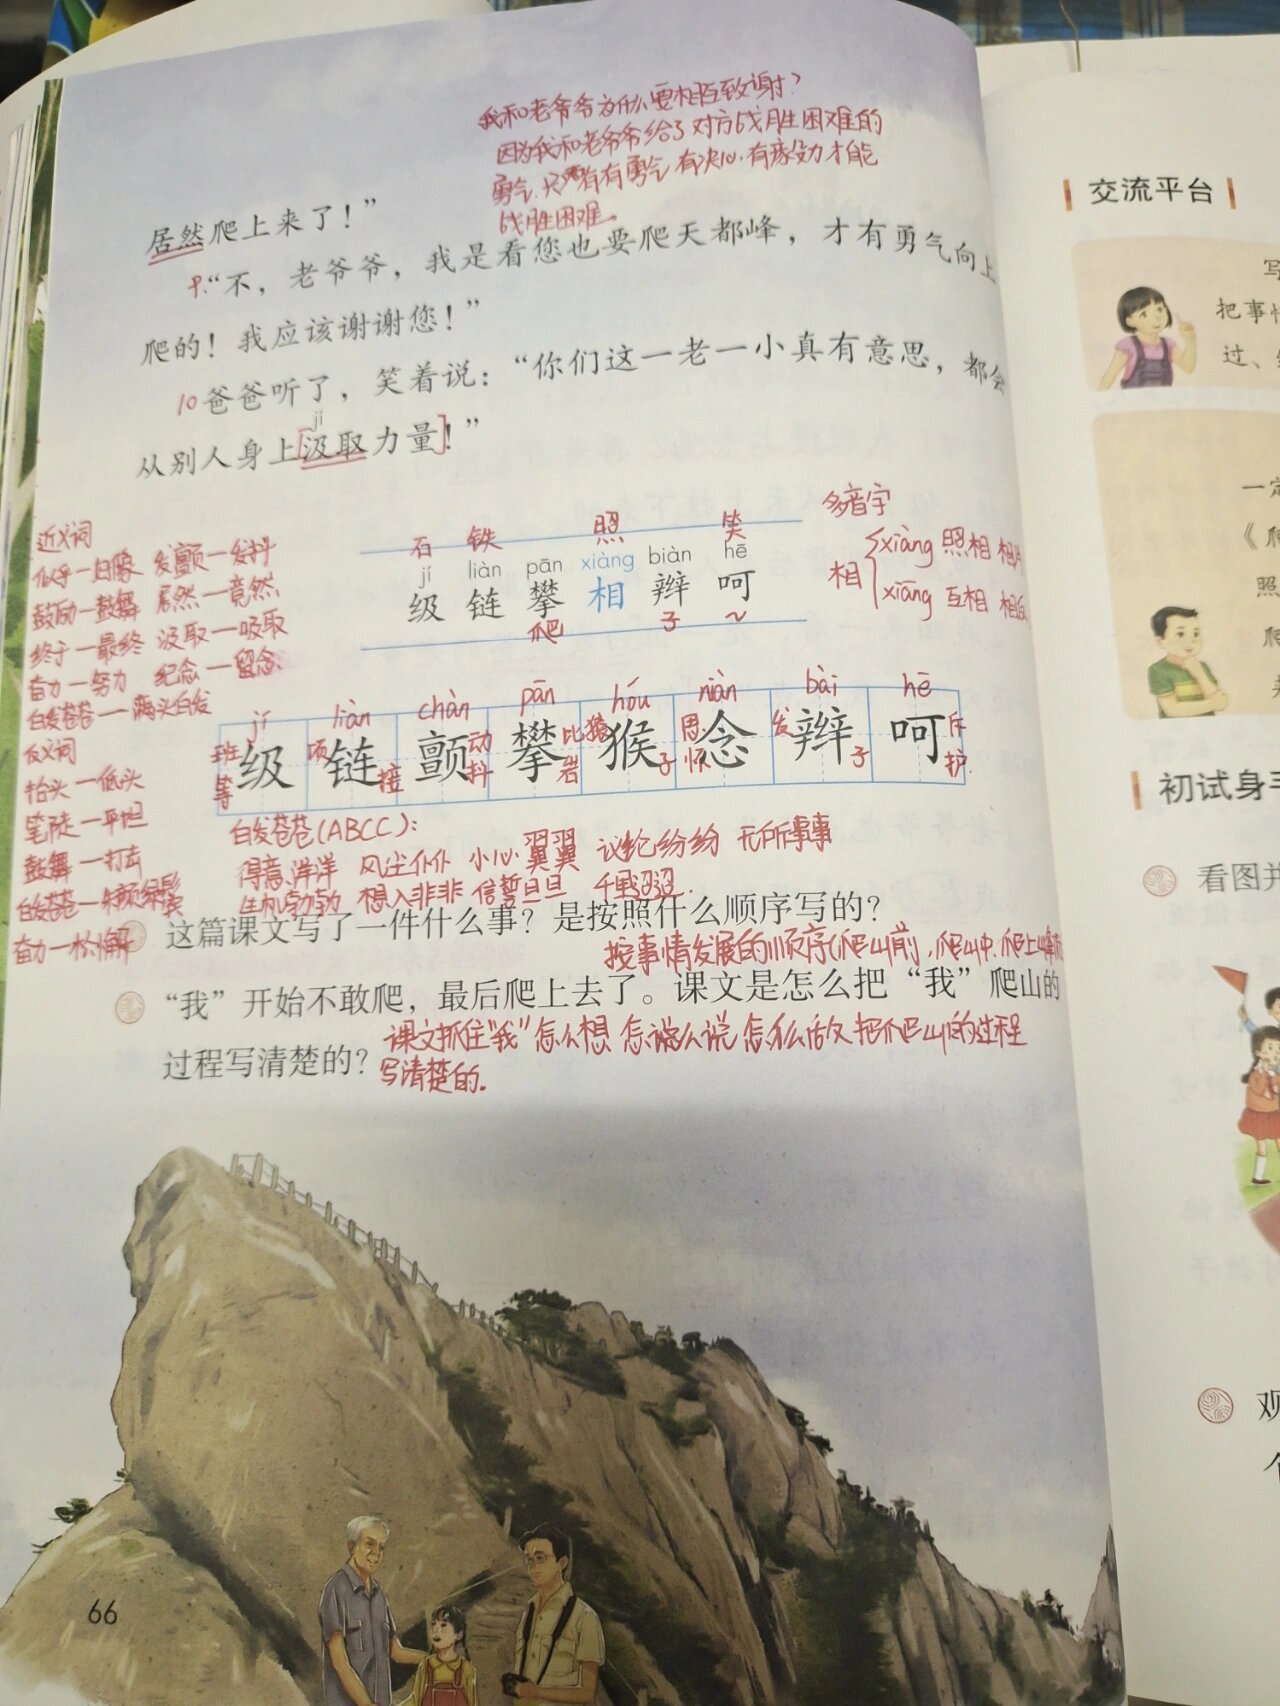 我和老爷爷为什么要相互致谢?
因为我和老爷爷给了对方战胜困难的
勇气,只有有勇气,有决心,有毅力才能
战胜困难。
居然爬上来了！”
9.“不，老爷爷，我是看您也要爬天都峰，才有勇气向上
爬的！我应该谢谢您！”
10 爸爸听了，笑着说：“你们这一老一小真有意思，都会
jí
从别人身上[汲取力量]！”
近义词
似乎—好像 发颤—发抖
鼓励—鼓舞 居然—竟然
终于—最终 汲取—吸取
奋力—努力 纪念—留念
白发苍苍—满头白发
反义词
抬头—低头
笔陡—平坦
鼓舞—打击
白发苍苍—
奋力—松懈
石 铁 照 笑
jí liàn pān xiàng biàn hē
级 链 攀 相 辫 呵
爬 子 ~
多音字
相
xiàng 照相 相片
xiāng 互相 相反
jí liàn chàn pān hóu niàn bài hē
班 级 等
项 链 接
颤 动 抖
攀 比 岩
猿 猴 子
思 念 怀
发 辫 子
呵 斥 护
白发苍苍(ABCC):
得意洋洋 风尘仆仆 小心翼翼 议论纷纷 无所事事
生机勃勃 想入非非 信誓旦旦 千里迢迢
这篇课文写了一件什么事？是按照什么顺序写的？
按事情发展的顺序(爬山前,爬山中,爬上峰顶
“我”开始不敢爬，最后爬上去了。课文是怎么把“我”爬山的
过程写清楚的？
课文抓住“我”怎么想 怎么说 怎么做 把爬山的过程
写清楚的.
66
交流平台
写
把事情
过、
一定
《爬
照
爬
初试身手
看图并
观